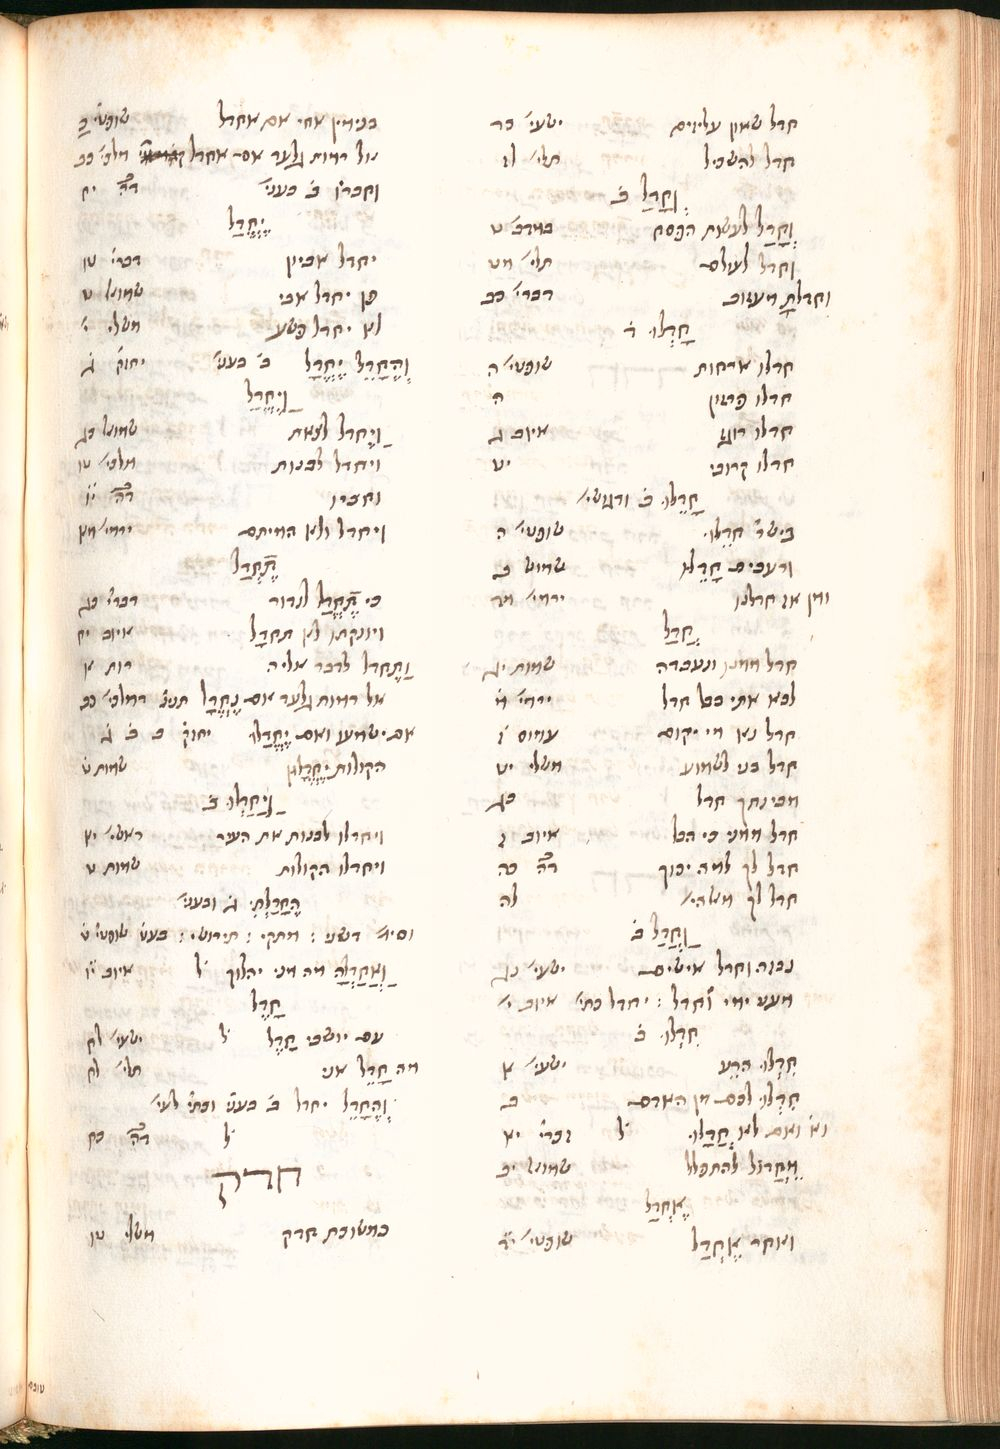 חדל שאון עליזים ישעי׳ כד
חדל להשכיל תלי׳ לו
וְחָדַל ב׳
וְחָדַל לעשות הפסח במדב׳ ט
וחדל לעולם תלי׳ מט
וְחָדַלְתָּ מעזוב דברי׳ כג
חָדְלוּ ד׳
חדלו ארחות שופטי׳ ה
חדלו פרזון ה
חדלו רוגז איוב ג
חדלו קרובי יט
חָדֵלּוּ ב׳ ודגושי׳
בישר׳ חדלו שופטי׳ ה
ורעבים חָדֵלּוּ שמוא׳ ב
ומן אז חדלנו ירמי׳ מד
חֲדַל
חדל ממנו ונעבדה שמות יד
לבא אתי בבל חדל ירמי׳ מ
חדל נא מי יקום עמוס ז
חדל בני לשמוע משלי יט
מבינתך חדל כג
חדל ממני כי הבל איוב ז
חדל לך למה יכוך דה׳ כה
חדל לך מאלהי׳ לה
וַחֲדַל ב׳
נבזה וחדל אישים ישעי׳ נג
מעט ימי וחדל : יחדל כתי׳ איוב י׳
חִדְלוּ ב׳
חִדְלוּ הרֵעַ ישעי׳ א
חִדְלוּ לכם מן האדם ב
ואם לא חֲדָלוּ ל׳ זכרי׳ יא
מֵחֲדֹל להתפלל שמוא׳ יב
אֶחְדַּל
ואמר אֶחְדַּל שופטי׳
בנימין אחי אם אחדל שופטי׳ כ
אל רמות גלעד אם אחדל מלכי׳ כב
וחברו ב׳ בעני׳ דה׳ יח
יֶחְדַּל
יחדל אביון דברי׳ טו
פן יחדל אבי שמוא׳ ט
לא יחדל פשע משלי י׳
וְהֶחָדֵל יֶחְדָּל ב׳ בעני׳ יחזק׳ ג
וַיֶּחְדַּל
ויחדל לצאת שמוא׳ כג
ויחדל לבנות מלכי׳ טו
וחבירו דה׳
ויחדל ולא המיתם ירמי׳ מא
תֶּחְדַּל
כי תֶחְדַּל לנדור דברי׳ כג
ויונקתו לא תחדל איוב יד
וַתֶּחְדַּל לדבר אליה רות א
אל רמות גלעד אם נֶחְדָּל תנינ׳ דמלכי׳ כב
אם ישמעו ואם יֶחְדָּלוּ יחזק׳ ב ב׳ ג
הקולות יֶחְדָּלוּן שמות ט
וַיַּחְדְּלוּ ב׳
ויחדלו לבנות את העיר ראשי׳ יא
ויחדלו הקולות שמות ט
הֶחֳדַלְתִּי ג׳ ובעני׳
וסי׳ דשני : מתקי : תירושי : בענ׳ שופטי׳ ט
וְאַחְדְּלָה מה מני יהלוך ל׳ איוב
חָדֶל
עם יושבי חָדֶל ל׳ ישעי׳ לח
מה חָדֵל אני תלי׳ לט
וְהֶחָדֵל יחדל ב׳ בעני׳
ל׳ דה׳
חדק
כמשוכת חדק משלי טו